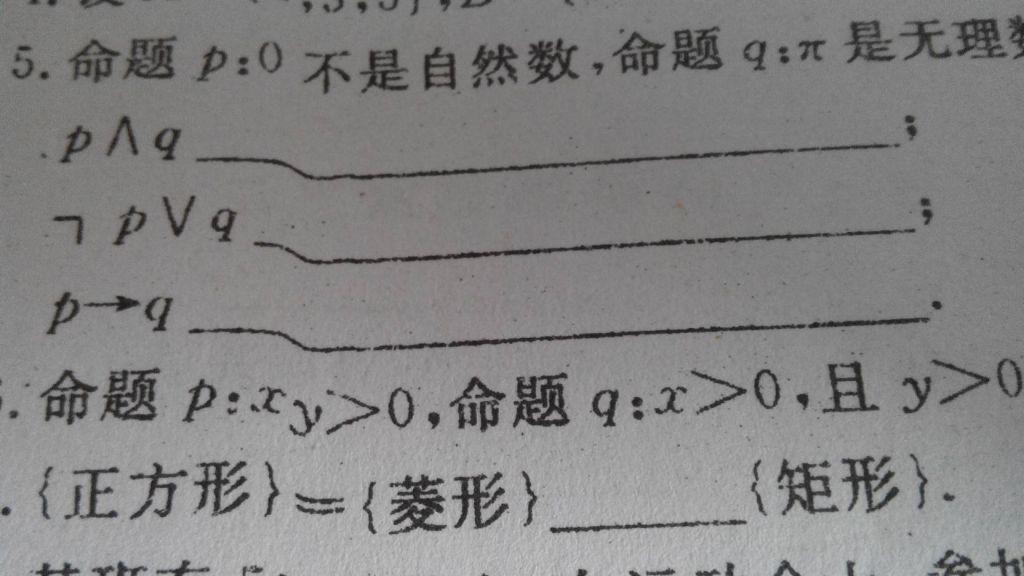 5. 命题 p:0 不是自然数,命题 q:π 是无理数
p∧q ;
¬ p∨q ;
p→q .
. 命题 p:xy>0,命题 q:x>0,且 y>0
. {正方形}={菱形}______{矩形}.